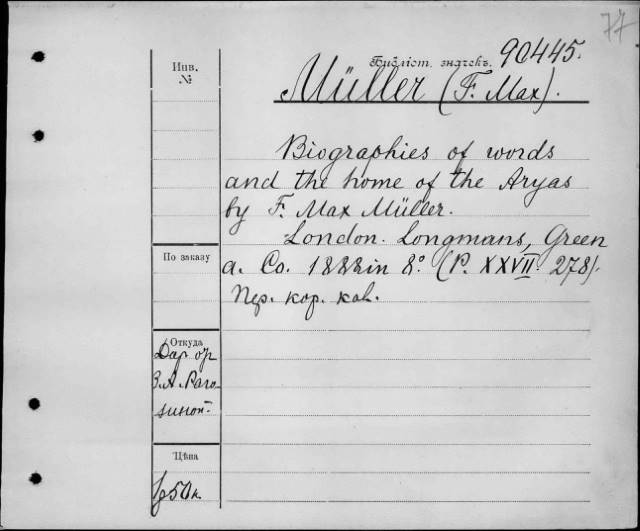 77
Библіот. значекъ. 90445.
Инв.
№
Müller (F. Max).
Biographies of words
and the home of the Aryas
by F. Max Müller.
London. Longmans, Green
a. Co. 1888 in 8° (P. XXVII. 278).
Пер. кор. кол.
По заказу
Откуда
Дар ог
З. А. Раго-
зиной
Цѣна
50 к.